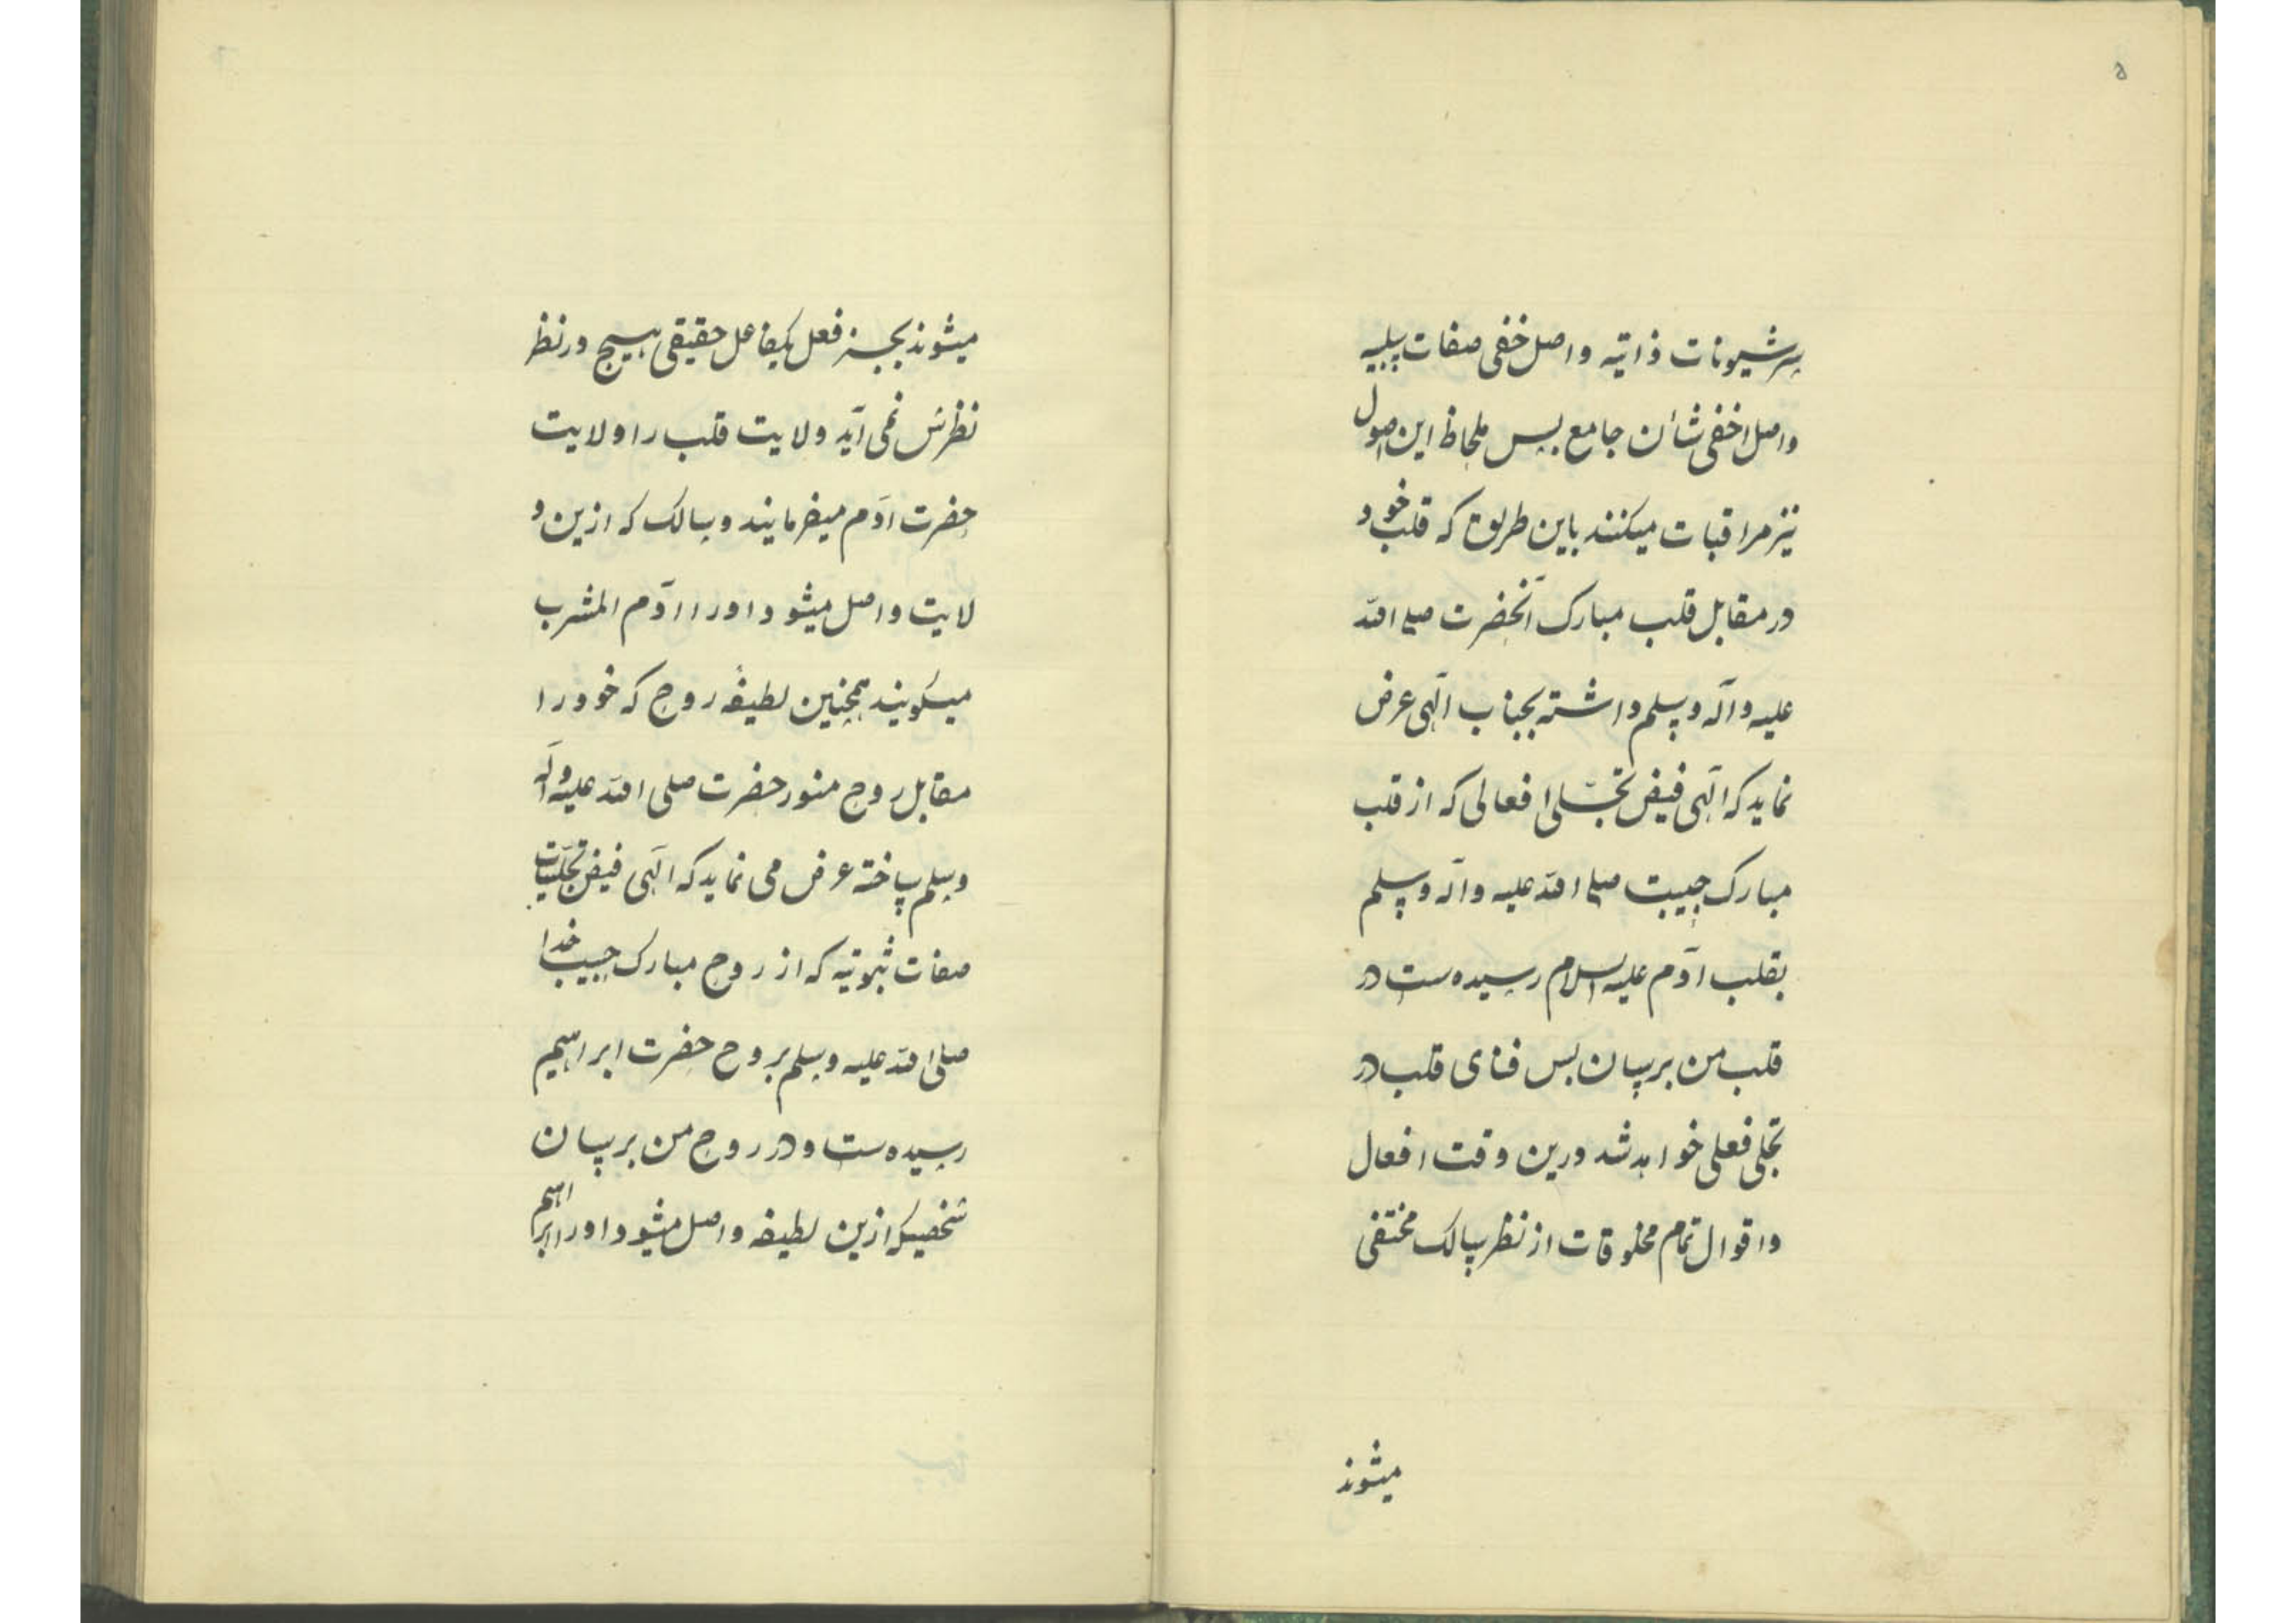 ۵
سر شیونات ذاتیه و اصل خفی صفات سلبیه
و اصل اخفی شأن جامع پس بلحاظ این اصول
نیز مراقبات میکنند باین طریق که قلب خود
در مقابل قلب مبارک آنحضرت صلی الله
علیه و آله وسلم داشته بجناب الٓهی عرض
نماید که الٓهی فیض تجلّی افعالی که از قلب
مبارک حبیبت صلی الله علیه و آله وسلم
بقلب آدم علیه السلام رسیده ست در
قلب من برسان پس فنای قلب در
تجلی فعلی خواهد شد درین وقت افعال
و اقوال تمام مخلوقات از نظر سالک مختفی
میشوند
میشوند بجز فعل یکفاعل حقیقی هیچ در نظر
نظرش نمی آید ولایت قلب را ولایت
حضرت آدم میفرمایند و سالک که ازین و
لایت واصل میشود او را آدم المشرب
میگویند همچنین لطیفهٔ روح که خود را
مقابل روح منور حضرت صلی الله علیه و آله
وسلم ساخته عرض می نماید که الٓهی فیض تجلّیات
صفات ثبوتیه که از روح مبارک حبیب خدا
صلی الله علیه وسلم بروح حضرت ابراهیم
رسیده ست و در روح من برسان
شخصیکه ازین لطیفه واصل میشود او را ابراهیم